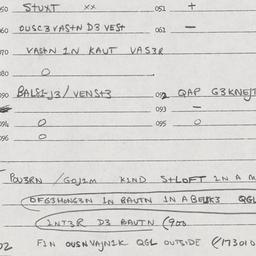 050 STUXT xx 051 +
060 OUSC3VASTN D3 VEST 061 —
070 VASTN 1N KAUT VAS3R
080 O
090 BALS1-J3/VENST3 092 QAP G3KNEJT
093 —
094 O 095 O
096 O
POV3RN /GOJ1M K1ND STLOFT 1N A M
OFG3HONG3N 1N BAUTN 1N A BEU3K3 QGL
1NT3R D3 BAUTN (900
02 F1N OUSNVAJN1K QGL OUTS1DE (/173010